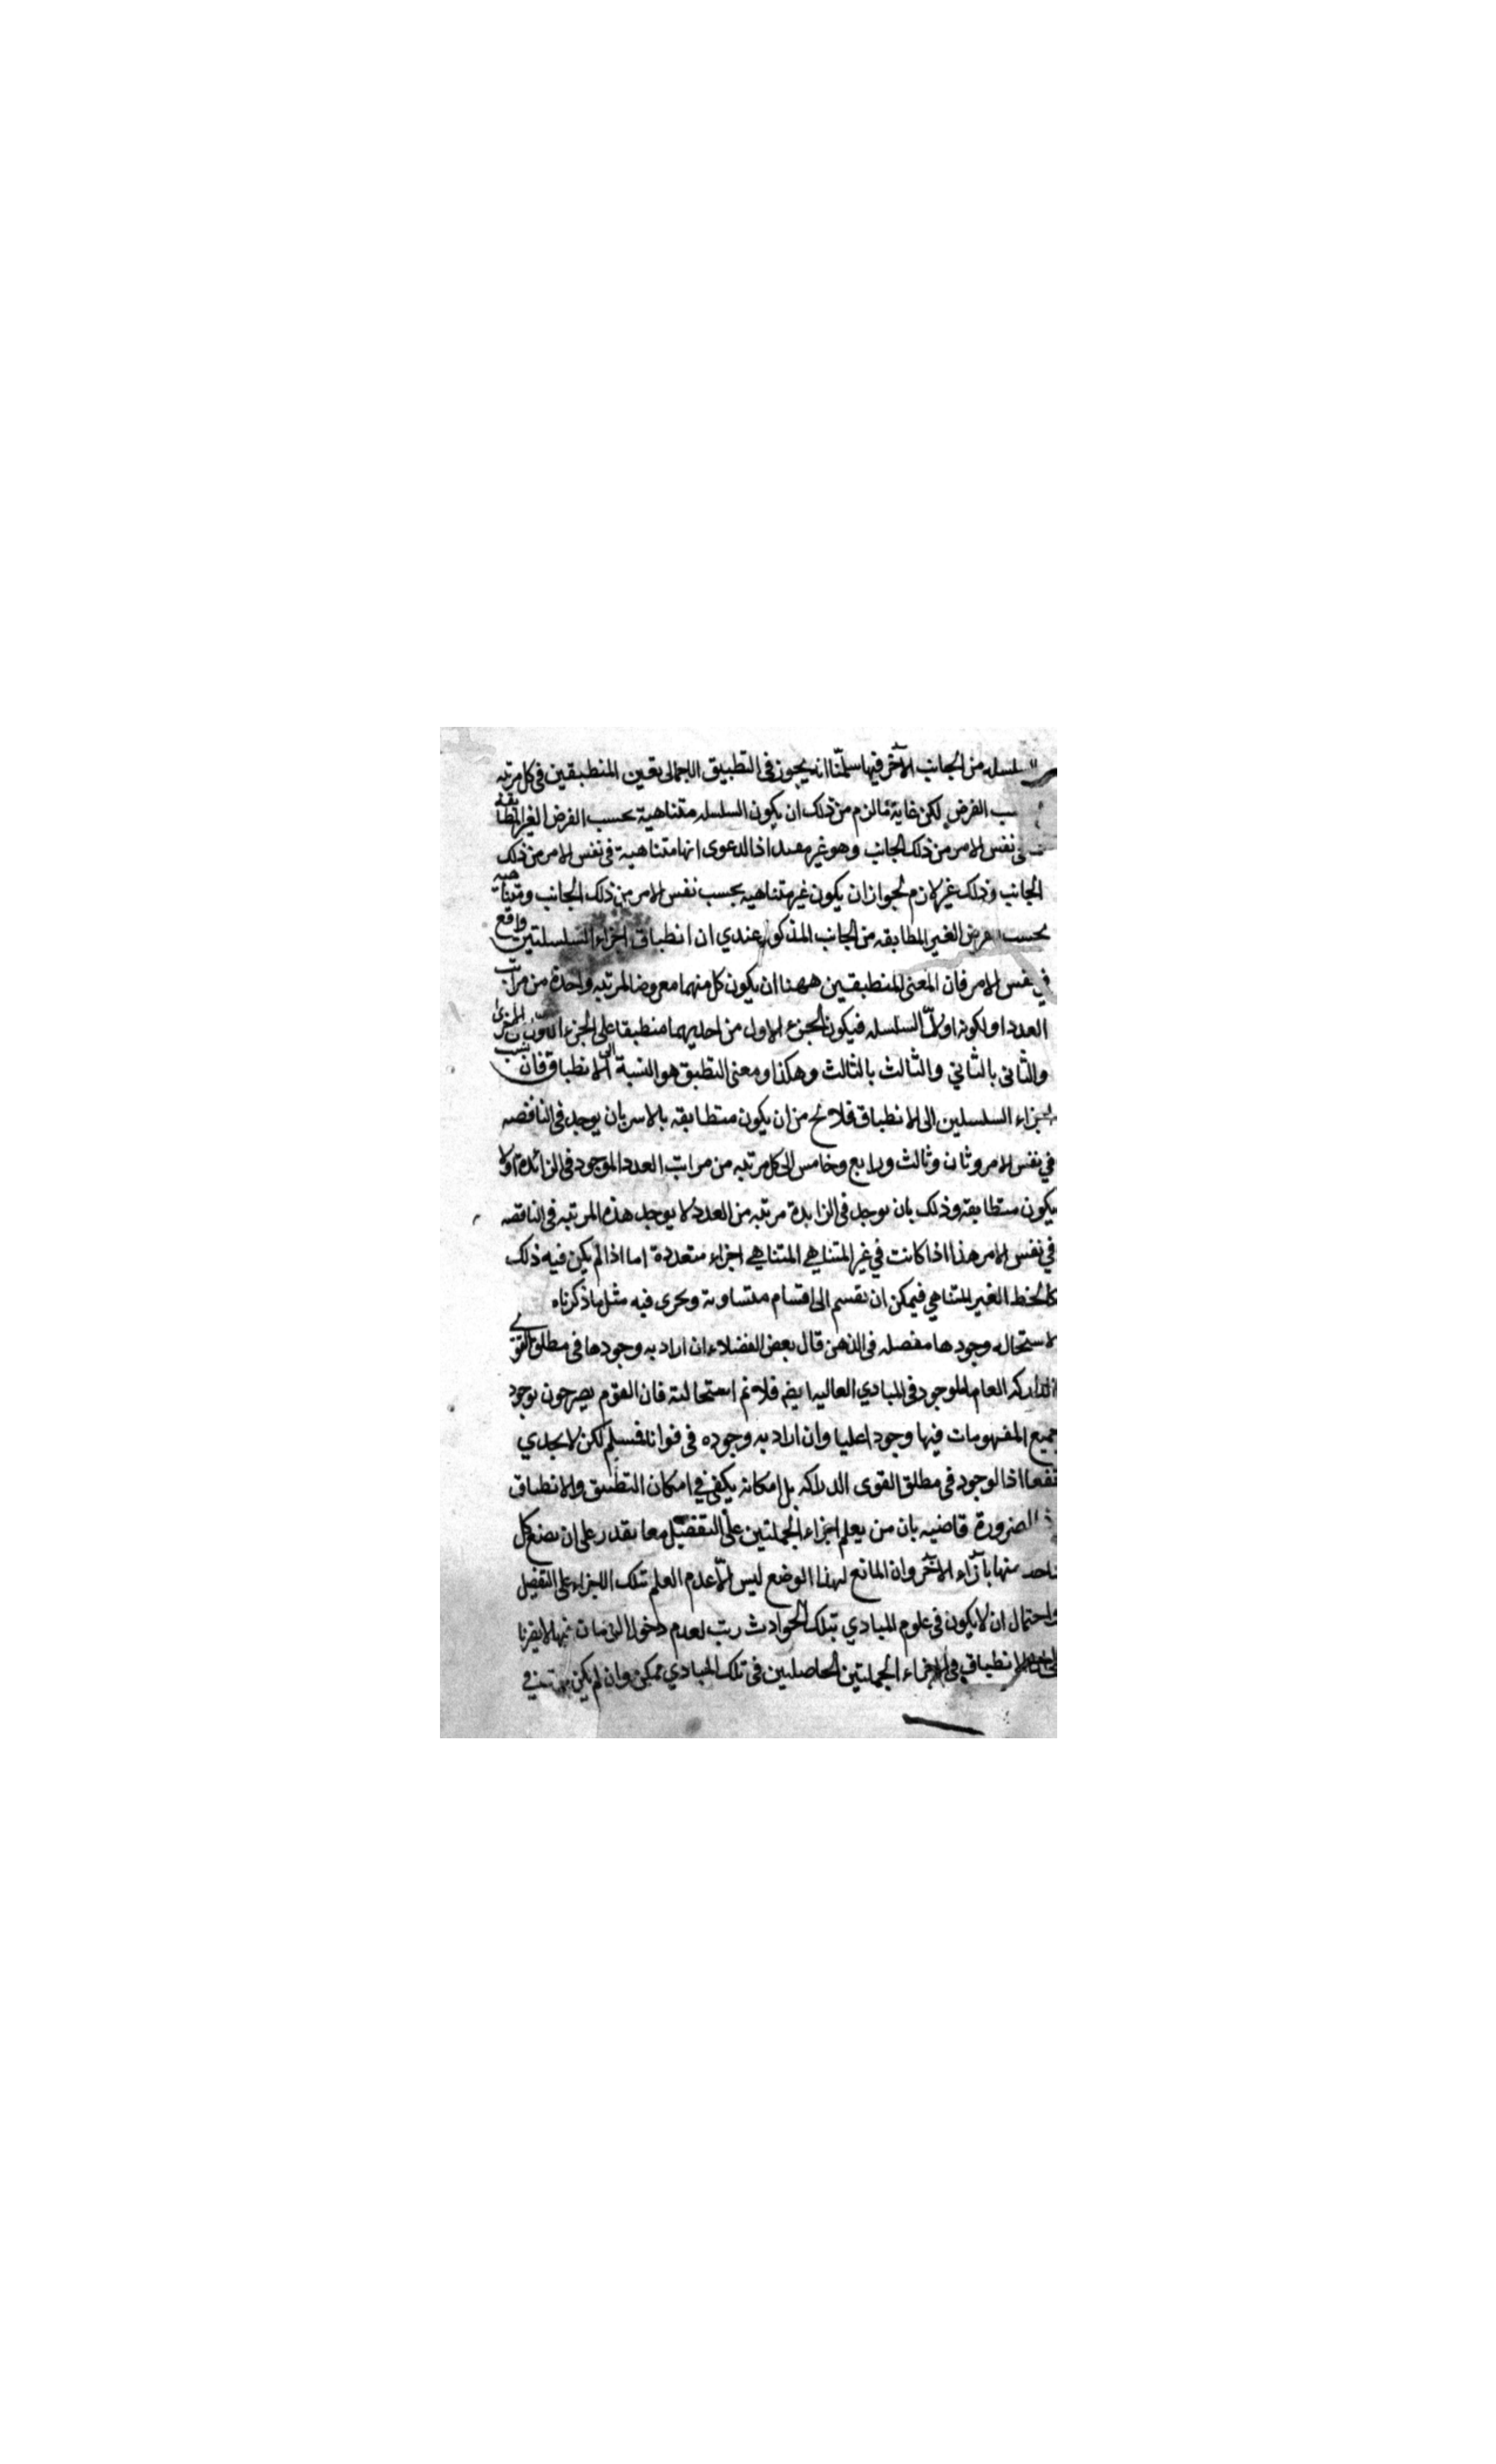 السلسله من الجانب الآخر فيها سلمنا انه يجوز في التطبيق الاجمالى تعين المنطبقين في كل مرتبه
الفرض لكن غاية ما لزم من ذلك ان يكون السلسله متناهية بحسب الفرض الغير المطابقة
نفس الامر من ذلك الجانب وهو غير مفيد اذ الدعوى انها متناهية في نفس الامر من ذلك
الجانب وذلك غير لازم لجواز ان يكون غير متناهيه بحسب نفس الامر من ذلك الجانب ومتناهيه
بحسب الفرض الغير المطابقه من الجانب المذكور عندي ان انطباق اجزاء السلسلتين واقع
في نفس الامر فان المعنى المنطبقين ههنا ان يكون كل منهما معروضا لمرتبه واحدة من مراتب
العدد او لكونه اولا السلسله فيكون الجزء الاول من احديهما منطبقا على الجزء الاول من الاخرى
والثانى بالثاني والثالث بالثالث وهكذا ومعنى التطبيق هو النسبة الى الانطباق فان نسب
اجزاء السلسلين الى الانطباق فلا يخ من ان يكون متطابقه بالاسر بان يوجد في الناقصه
في نفس الامر وثان وثالث ورابع وخامس الى كل مرتبه من مراتب العدد الموجود في الزائدة اولا
يكون متطابقه وذلك بان يوجد في الزايدة مرتبه من العدد لا يوجد هذه المرتبه في الناقصه
في نفس الامر هذا اذا كانت في غير المتناهي المتناهي اجزاء متعددة اما اذا لم يكن فيه ذلك
كالخط الغير المتناهي فيمكن ان نقسم الى اقسام متساوية ويجرى فيه مثل ما ذكرناه
لاستحاله وجودها مفصله في الذهن قال بعض الفضلاء ان اراد به وجودها في مطلق القوى
الداركه العام الموجود في المبادي العاليه ايضم فلا نم استحالته فان القوم يصرحون بوجود
جميع المفهومات فيها وجودا عليا وان اراد به وجوده في قوانا فمسلم لكن لا يجدي
نفعا اذ الوجود في مطلق القوى الدراكه بل امكانه يكفي في امكان التطبيق والانطباق
الضرورة قاضيه بان من يعلم اجزاء الجملتين على التفضيل معا يقدر على ان يضع كل
واحد منها بازاء الآخر وان المانع لهذا الوضع ليس الا عدم العلم بتلك الاجزاء على التفضيل
واحتمال ان لا يكون في علوم المبادي بتلك الحوادث رتب لعدم دخول الزمان فيها لا يضرنا
الانطباق في اجزاء الجملتين الحاصلين في تلك المبادي ممكن وان لم يكن